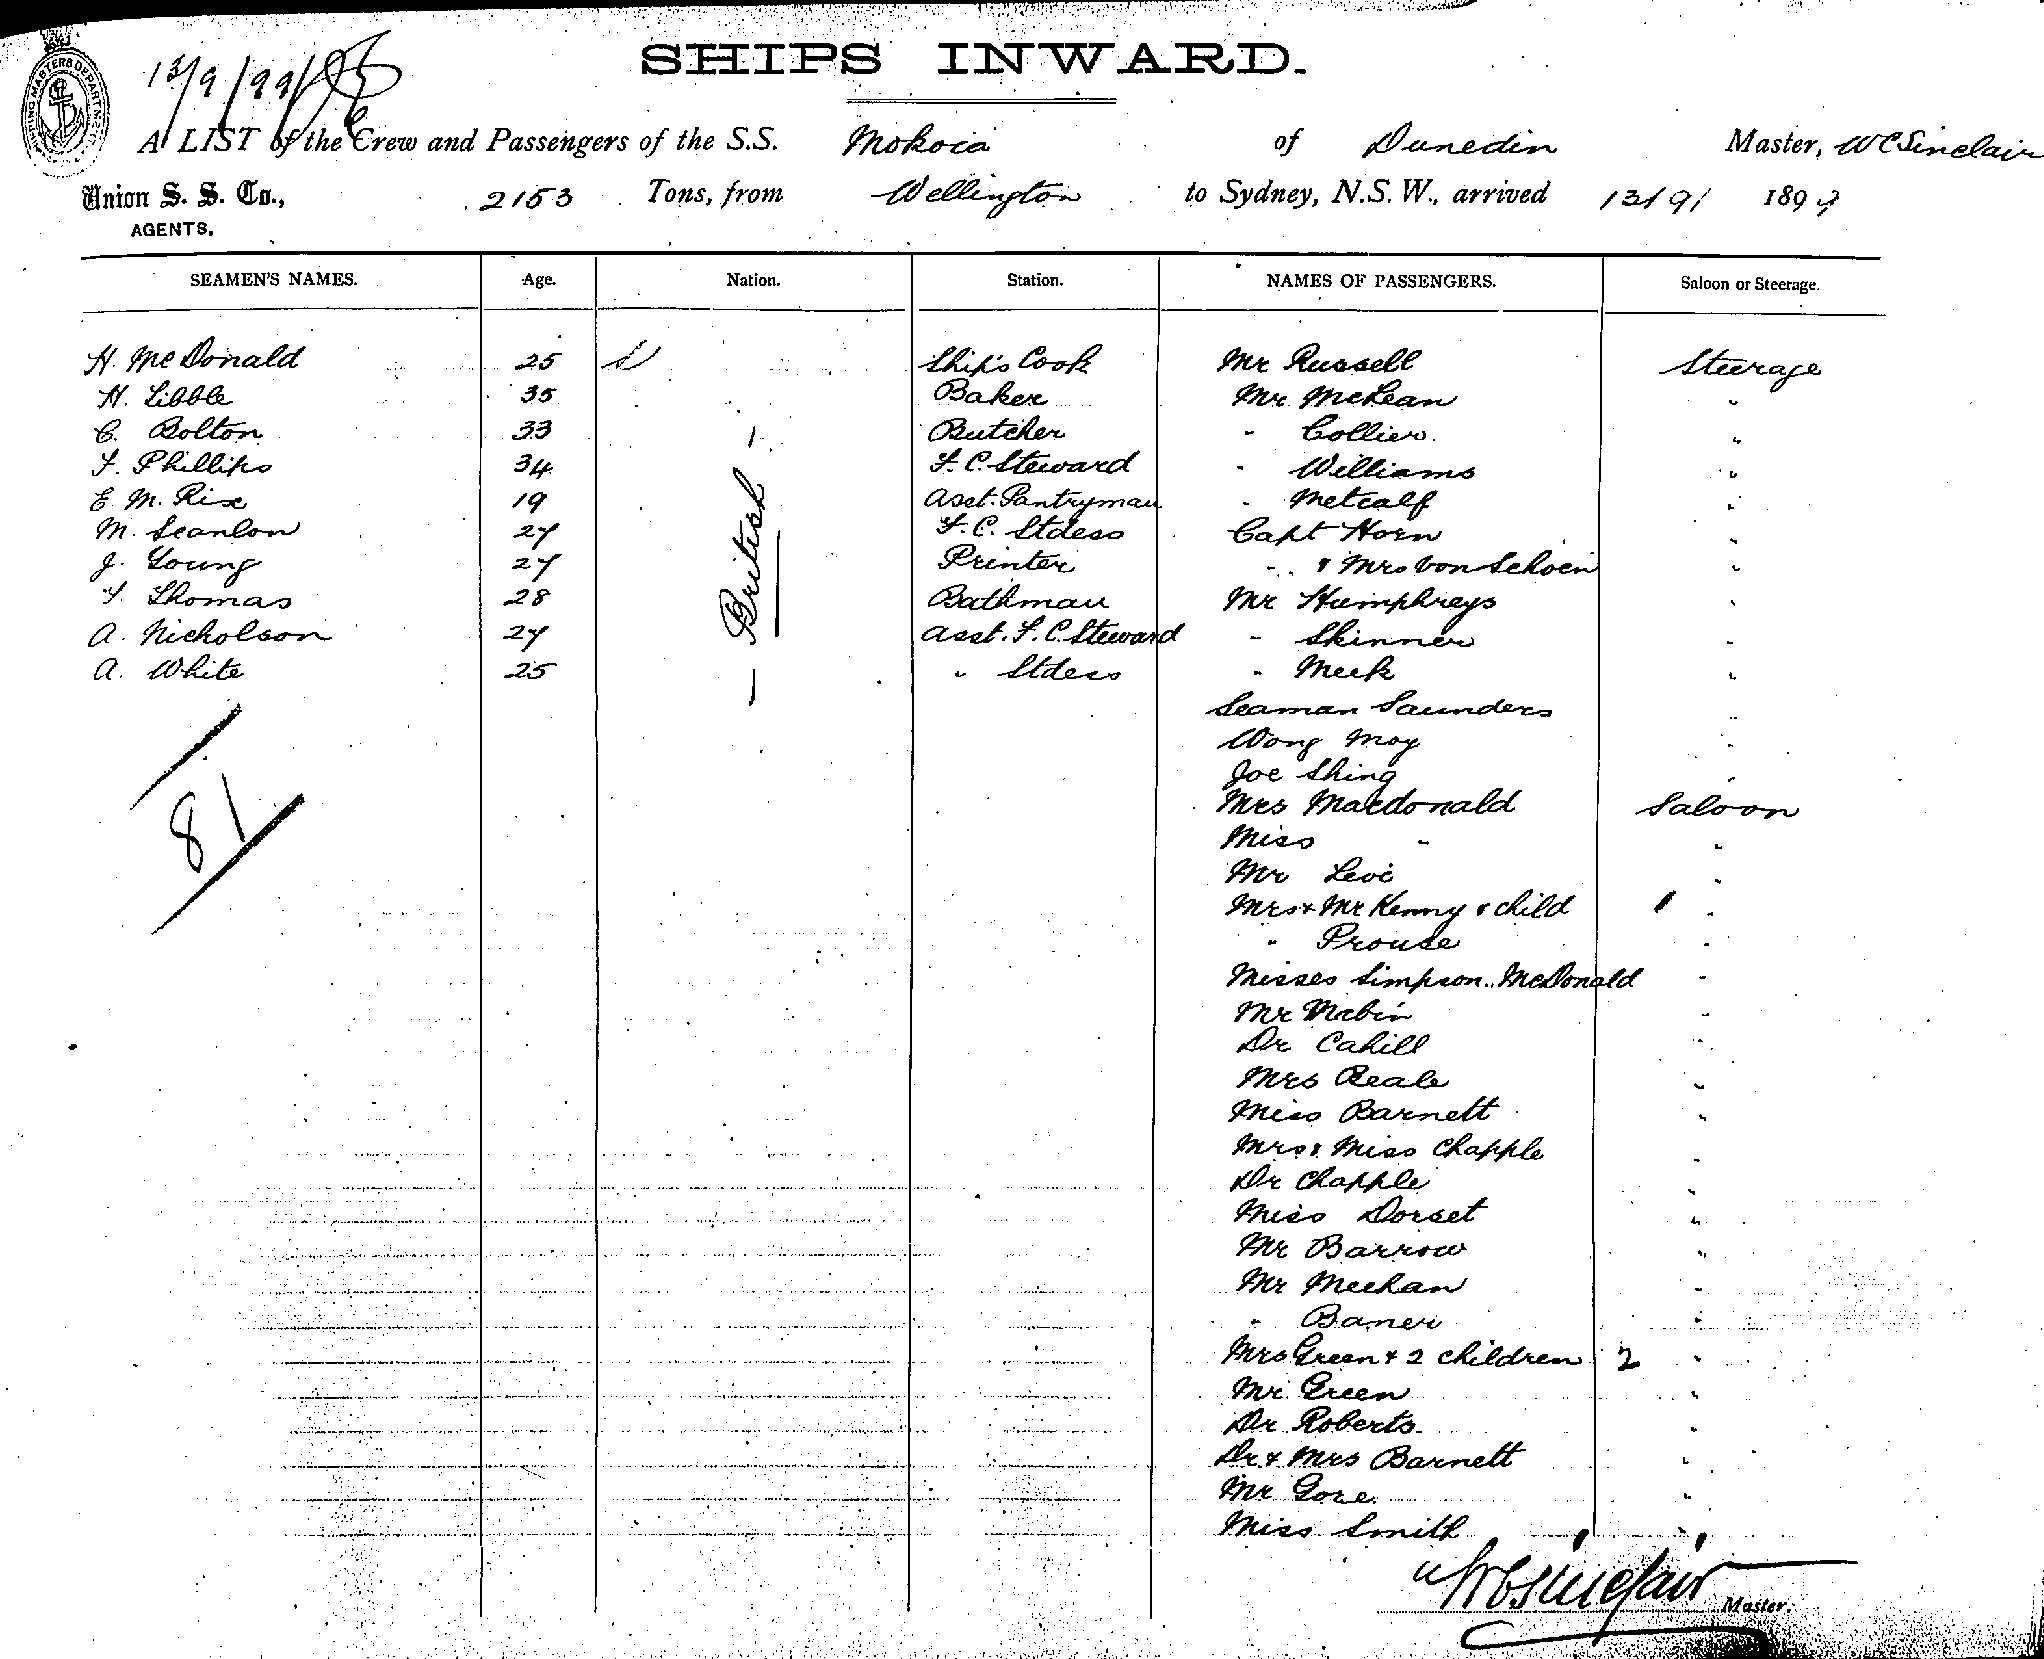 13/9/99
SHIPS INWARD.
SHIPPING MASTERS DEPARTMENT
A LIST of the Crew and Passengers of the S.S. Mokoia of Dunedin Master, W C Sinclair
Union S. S. Co., 2153 Tons, from Wellington to Sydney, N.S.W., arrived 13/9/ 1899
AGENTS.
SEAMEN'S NAMES. Age. Nation. Station. NAMES OF PASSENGERS. Saloon or Steerage.
H. McDonald 25 Ship's Cook Mr Russell Steerage
H. Libble 35 Baker Mr McLean "
C. Bolton 33 Butcher " Collier "
F. Phillips 34 F. C. Steward " Williams "
E M. Rix 19 Asst. Pantryman " Metcalf "
M. Scanlon 27 F. C. Stdess Capt Horn "
J. Young 27 Printer " & Mrs Von Schoen "
F. Thomas 28 Bathman Mr Humphreys "
A. Nicholson 27 Asst. F. C. Steward " Skinner "
A. White 25 " Stdess " Meek "
- British -
Seaman Saunders "
Wong Moy "
Joe Shing "
Mrs Macdonald Saloon
81
Miss " "
Mr Levi "
Mrs & Mr Kenny & child 1 "
" Prouse "
Misses Simpson. McDonald "
Mr Mabin "
Dr Cahill "
Mrs Reale "
Miss Barnett "
Mrs & Miss Chapple "
Dr Chapple "
Miss Dorset "
Mr Barrow "
Mr Meehan "
" Baner "
Mrs Green & 2 children 2 "
Mr Green "
Dr Roberts "
Dr & Mrs Barnett "
Mr Gore "
Miss Smith "
W C Sinclair Master.